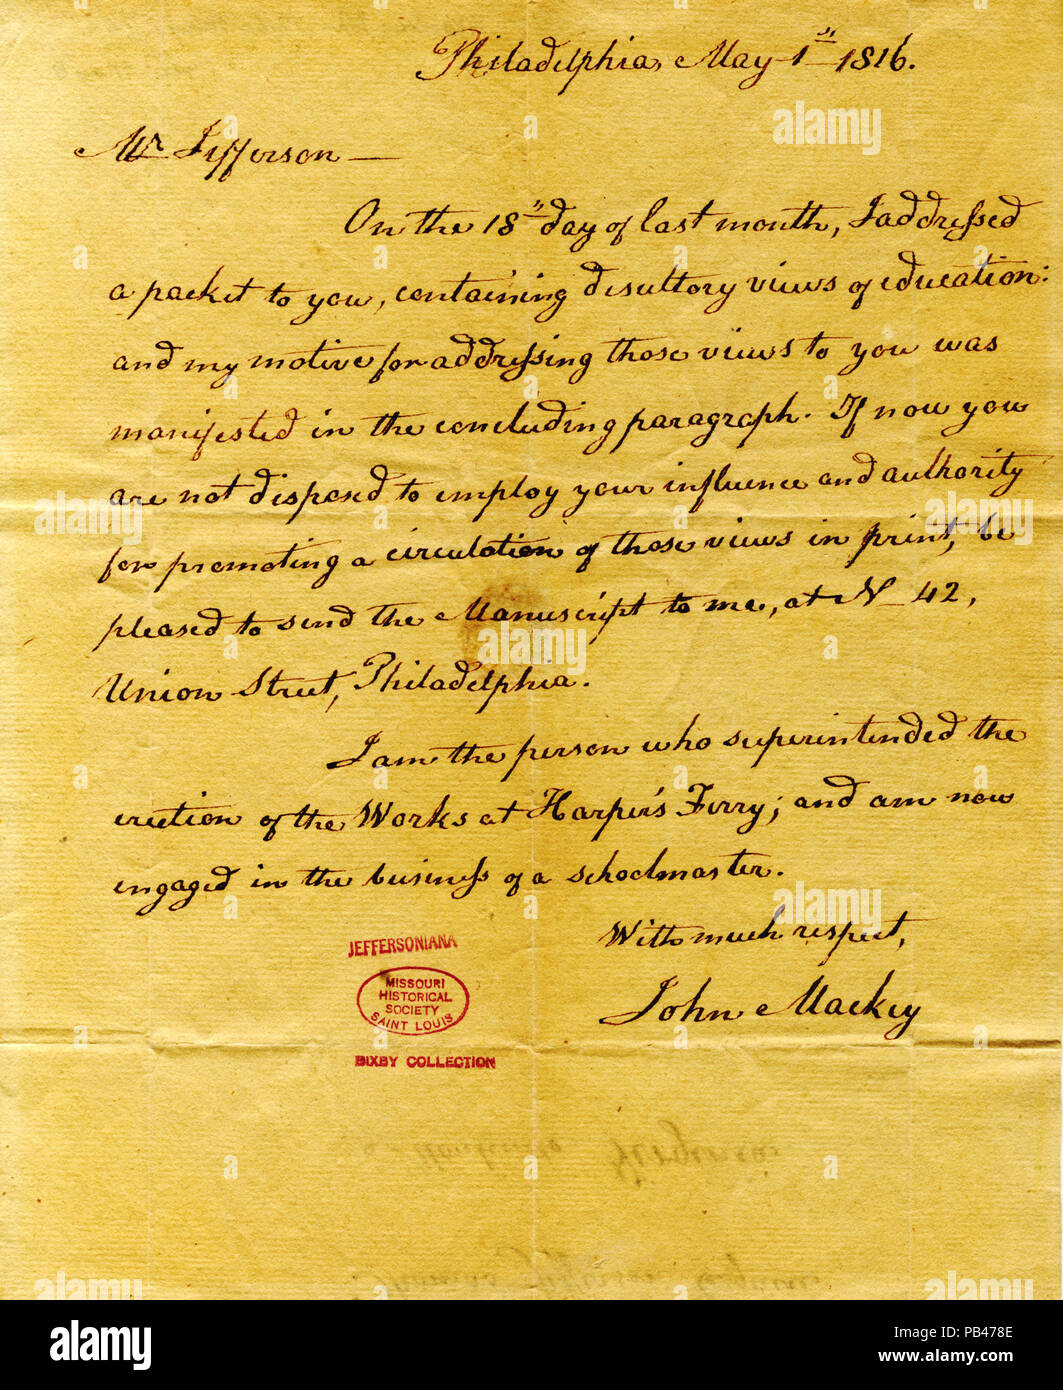 Philadelphia, May 1st 1816.
Mr Jefferson —
On the 18th day of last month, I addressed
a packet to you, containing desultory views of education:
and my motive for addressing those views to you was
manifested in the concluding paragraph. If now you
are not disposed to employ your influence and authority
for promoting a circulation of those views in print, be
pleased to send the Manuscript to me, at No 42,
Union Street, Philadelphia.
I am the person who superintended the
erection of the Works at Harper's Ferry; and am now
engaged in the business of a schoolmaster.
With much respect,
John Mackey
JEFFERSONIANA
MISSOURI
HISTORICAL
SOCIETY
SAINT LOUIS
BIXBY COLLECTION
alamy
alamy
Image ID: PB478E
www.alamy.com